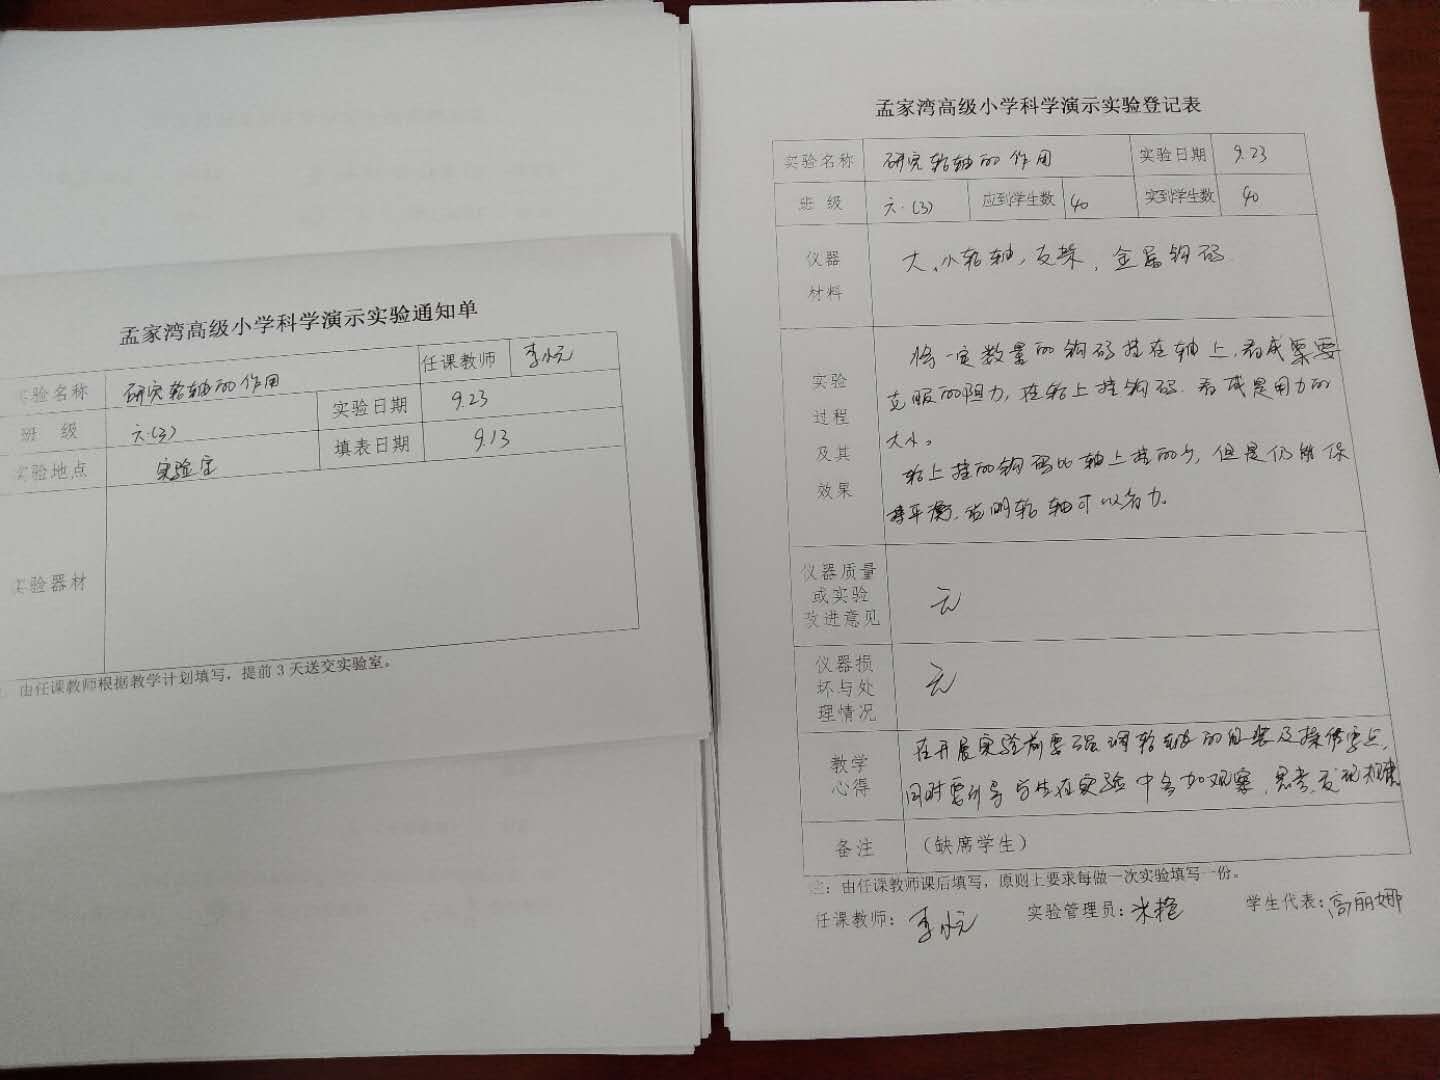 孟家湾高级小学科学演示实验通知单
实验名称 研究轮轴的作用 任课教师
班 级 六.(3) 实验日期 9.23
实验地点 实验室 填表日期 9.13
实验器材
由任课教师根据教学计划填写，提前3天送交实验室。
孟家湾高级小学科学演示实验登记表
实验名称 研究轮轴的作用 实验日期 9.23
班 级 六.(3) 应到学生数 40 实到学生数 40
仪器
材料
大、小轮轴，支操，金属钩码
实验
过程
及其
效果
将一定数量的钩码挂在轴上，看成需要
克服的阻力，在轮上挂钩码，看成是用力的
大小。
轮上挂的钩码比轴上挂的少，但是仍能保
持平衡，说明轮轴可以省力。
仪器质量
或实验
改进意见
无
仪器损
坏与处
理情况
无
教学
心得
在开展实验前要强调轮轴的组装及操作要点，
同时要引导学生在实验中参加观察、思考、发现规律
备注 （缺席学生）
注：由任课教师课后填写，原则上要求每做一次实验填写一份。
任课教师： 实验管理员：米艳 学生代表：高丽娜